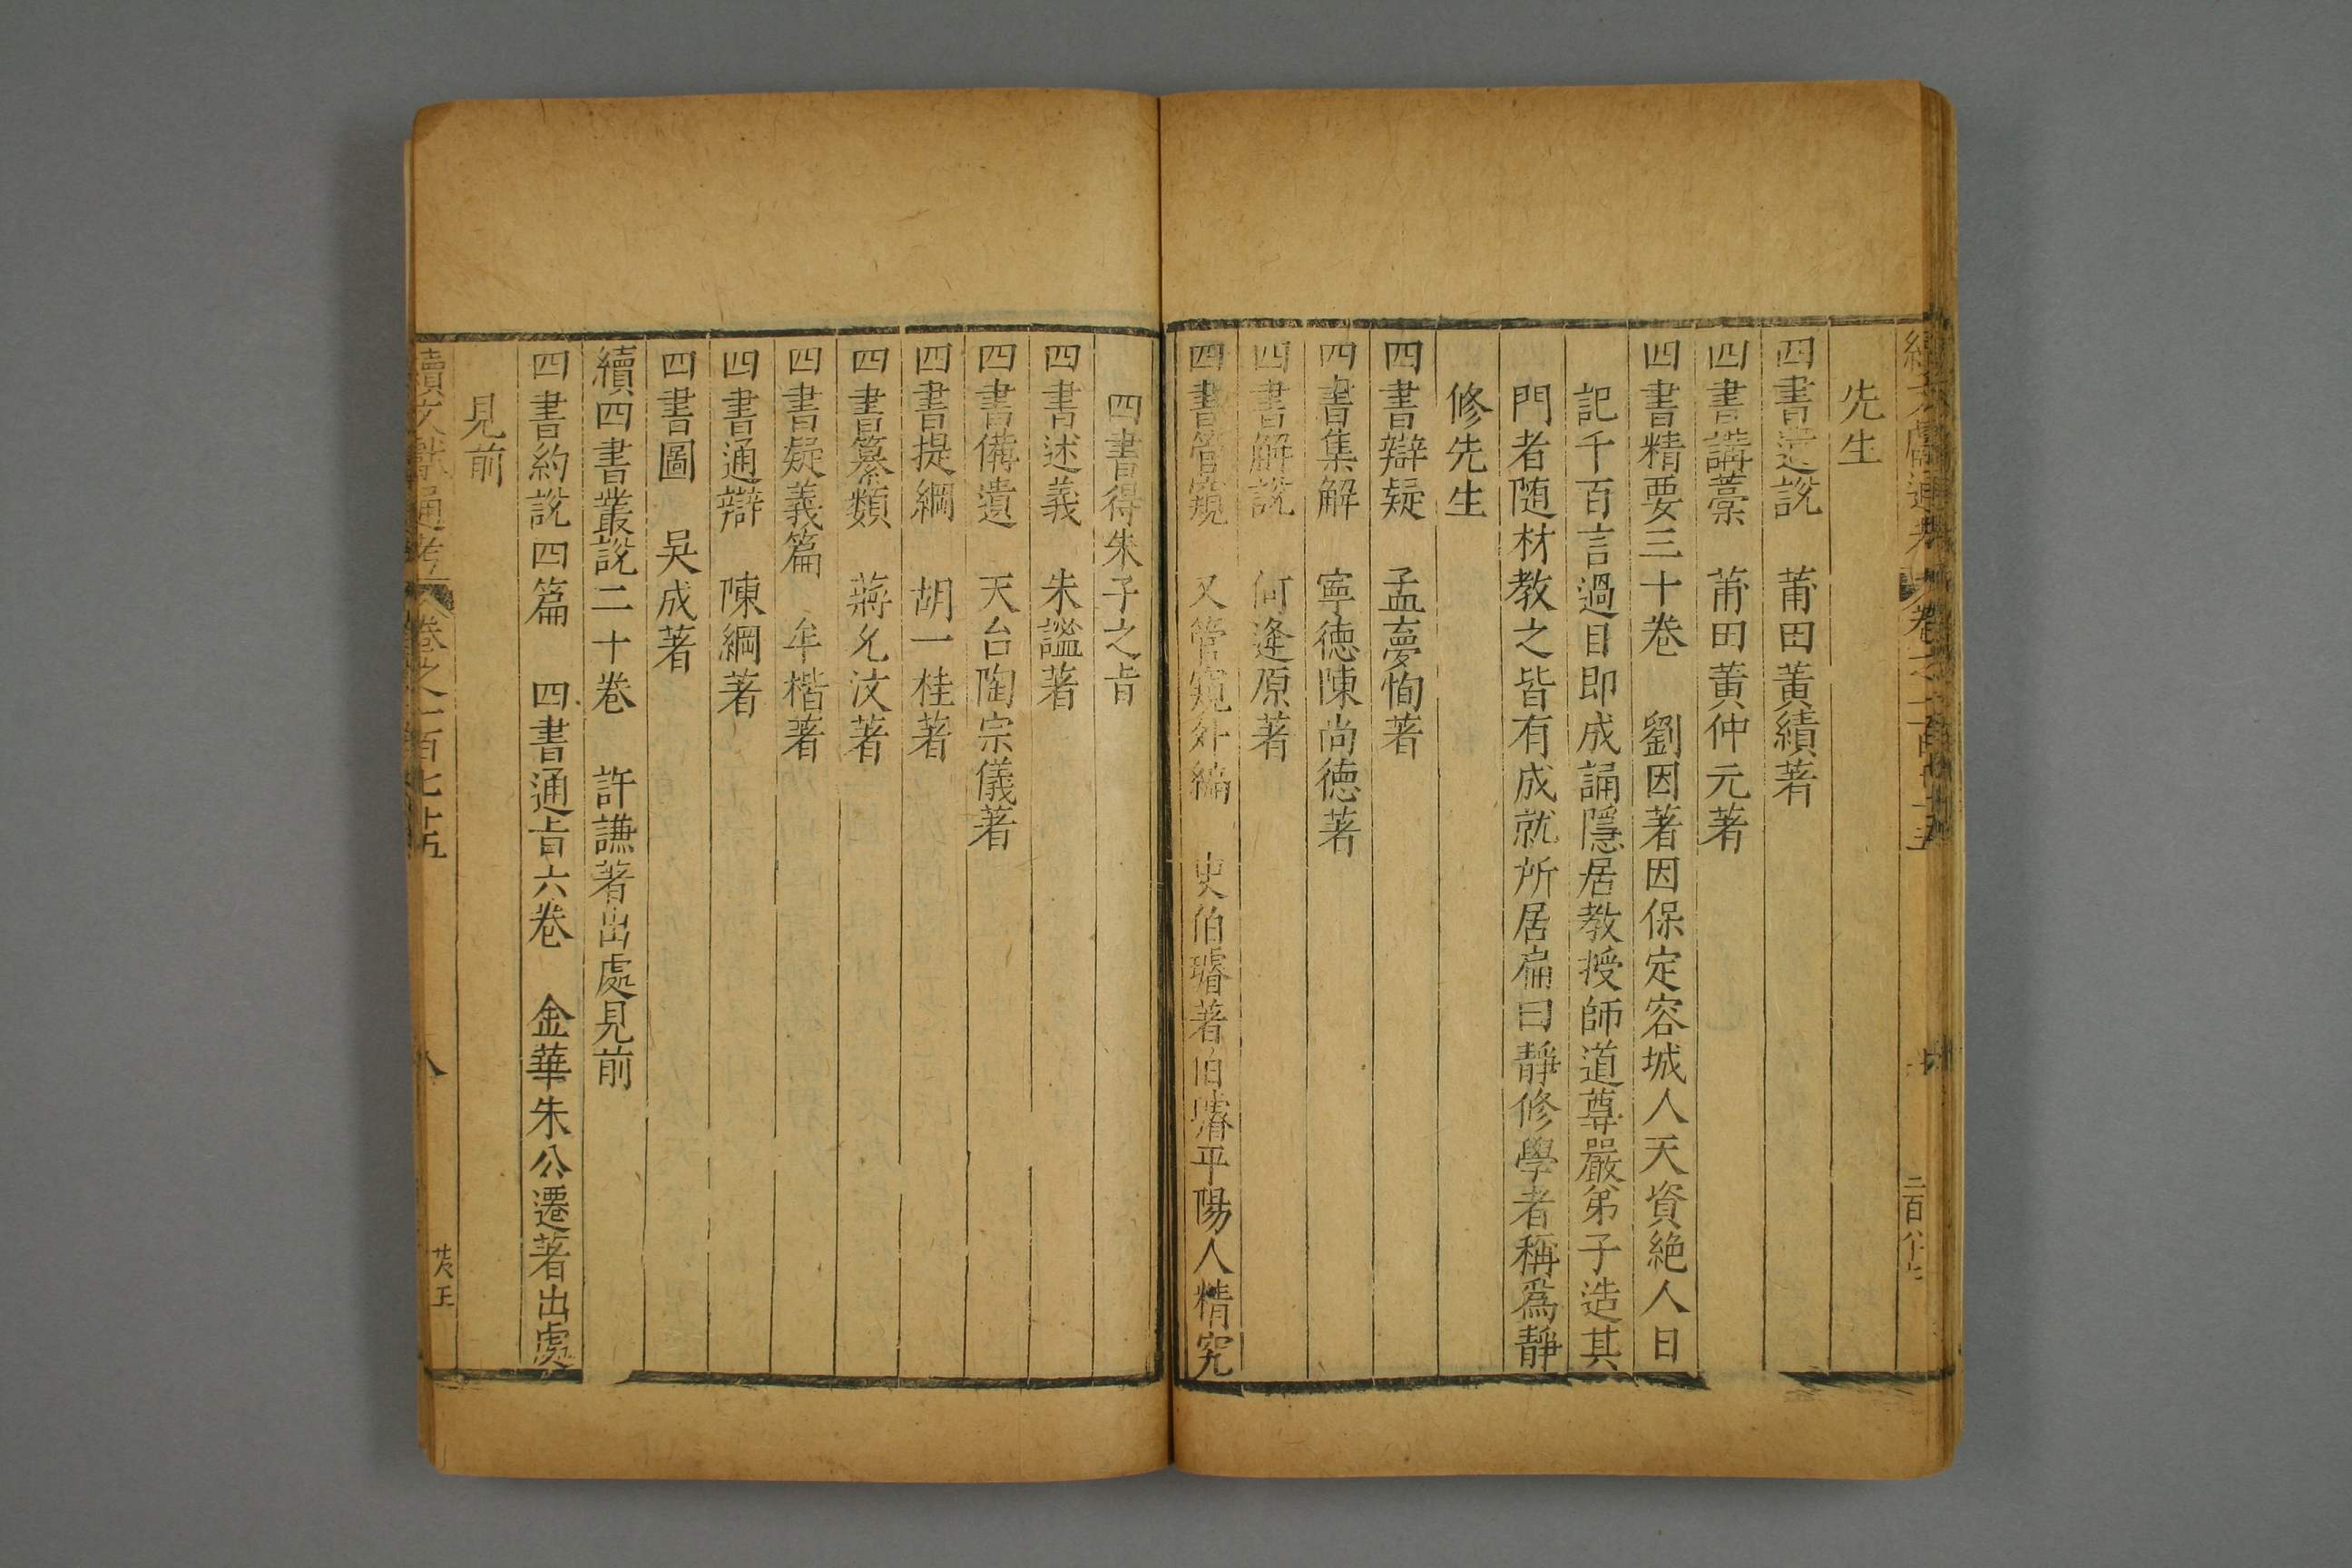 先生
四書遺說　莆田黃績著
四書講藁　莆田黃仲元著
四書精要三十卷　劉因著因保定容城人天資絶人日
記千百言過目即成誦隱居教授師道尊嚴弟子造其
門者随材教之皆有成就所居扁曰靜修學者稱爲靜
修先生
四書辯疑　孟夢恂著
四書集解　寧德陳尚德著
四書解說　何逢原著
四書管窺　又管窺外編　史伯璿著伯璿平陽人精究
四書得朱子之旨
四書述義　朱謐著
四書備遺　天台陶宗儀著
四書提綱　胡一桂著
四書纂類　蔣允汶著
四書疑義篇　牟楷著
四書通辯　陳綱著
四書圖　吴成著
續四書叢說二十卷　許謙著出處見前
四書約說四篇　四書通旨六卷　金華朱公遷著出處
見前
續文獻通考　卷之一百七十五　八